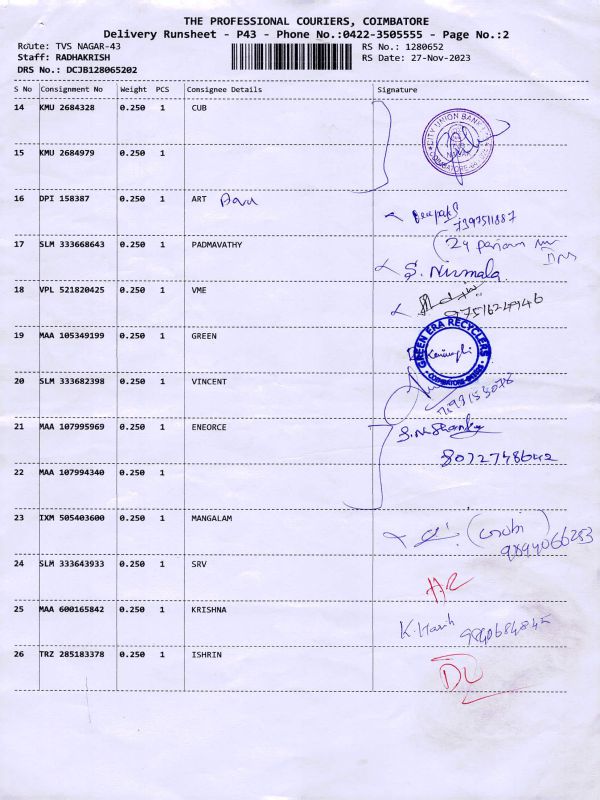 THE PROFESSIONAL COURIERS, COIMBATORE
Delivery Runsheet - P43 - Phone No.:0422-3505555 - Page No.:2
Route: TVS NAGAR-43 RS No.: 1280652
Staff: RADHAKRISH RS Date: 27-Nov-2023
DRS No.: DCJB128065202
S No Consignment No Weight PCS Consignee Details Signature
14 KMU 2684328 0.250 1 CUB
CITY UNION BANK
15 KMU 2684979 0.250 1
16 DPI 158387 0.250 1 ART
7397511887
17 SLM 333668643 0.250 1 PADMAVATHY
S. Nirmala
18 VPL 521820425 0.250 1 VME
9751624946
19 MAA 105349199 0.250 1 GREEN
GREEN ERA RECYCLERS
20 SLM 333682398 0.250 1 VINCENT
21 MAA 107995969 0.250 1 ENEORCE
8072748642
22 MAA 107994340 0.250 1
23 IXM 505403600 0.250 1 MANGALAM
9894066283
24 SLM 333643933 0.250 1 SRV
25 MAA 600165842 0.250 1 KRISHNA K. Harih
26 TRZ 285183378 0.250 1 ISHRIN DU